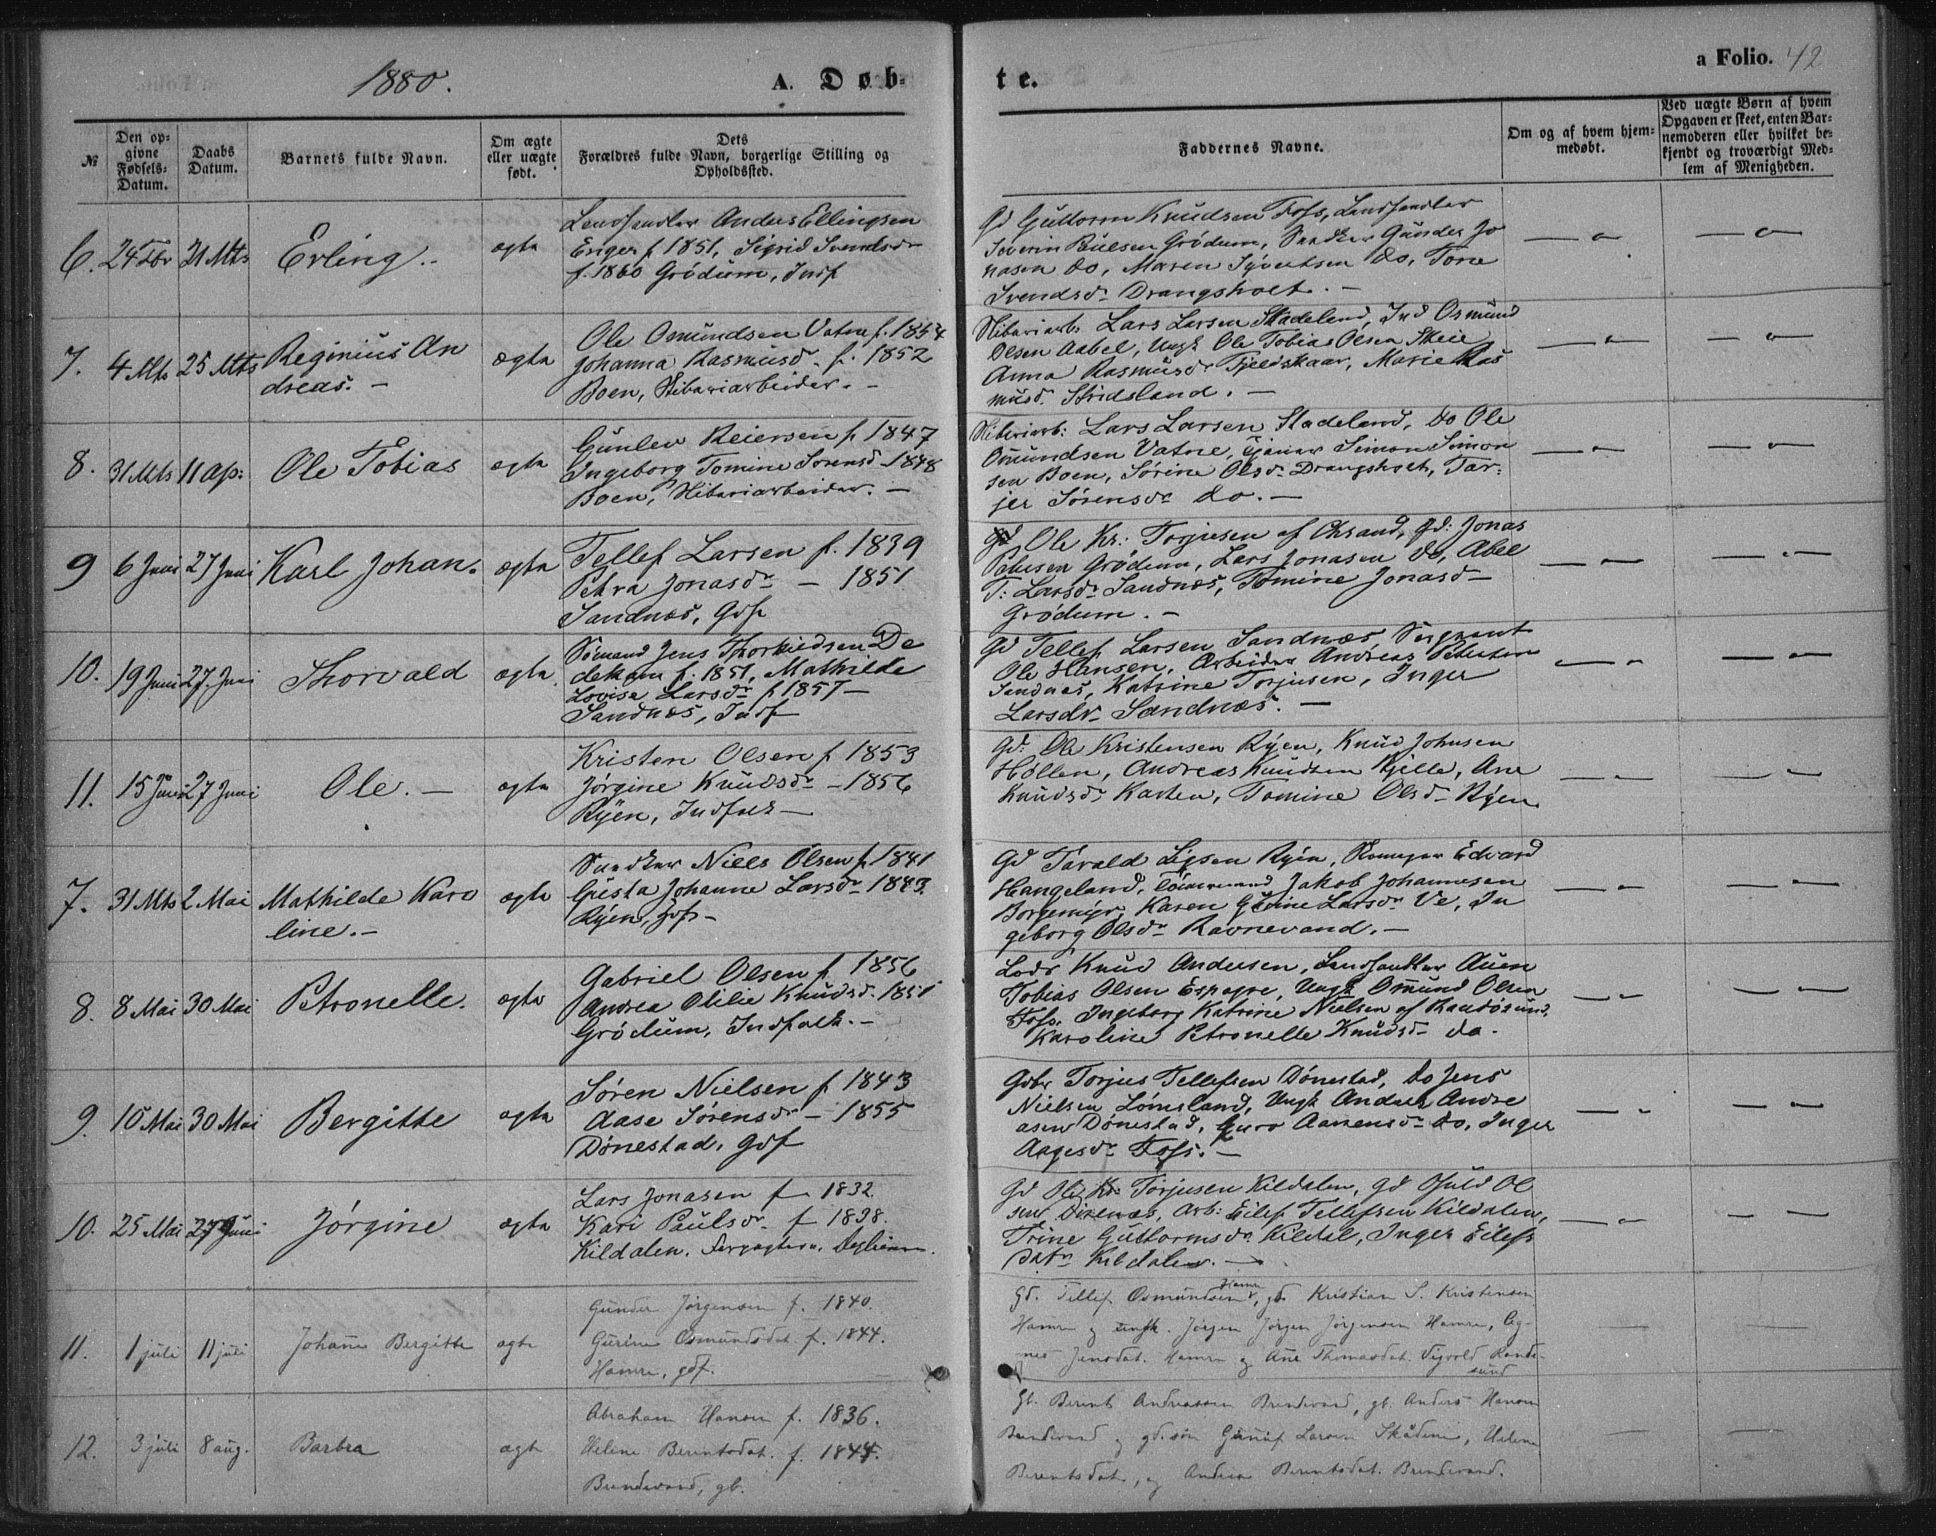 1880.
A. Døb-
te.
a Folio. 42
№
Den op-
givne
Fødsels-
Datum.
Daabs
Datum.
Barnets fulde Navn.
Om ægte
eller uægte
født.
Dets
Forældres fulde Navn, borgerlige Stilling og
Opholdssted.
Faddernes Navne.
Om og af hvem hjem-
medøbt.
Ved uægte Børn af hvem
Opgaven er skeet, enten Bar-
nemoderen eller hvilket be-
kjendt og troværdigt Med-
lem af Menigheden.
6. 24 Fbr 21 Mts Erling. ægte
Landhandler Anders Ellingsen
f. 1851, Sigrid
f. 1860 Grødum, Indf
Gd Guttorm Knudsen Foss, Landhandler
Severin Grødum, Gunder Jo
nasen do, Maren Syvertsen do, Tone
Svendsdr Drangsholt. —
7. 4 Mts 25 Mts Reginius An
dreas. — ægte
Ole Omundsen Vatne f. 1854
Johanna Rasmusd. f. 1852
Boen, Sliberiarbeider. —
Sliberiarb: Lars Larsen Stadeland, Ind Osmund
Olsen Aabel, Ungk Ole Tobias Olsen Skeie
Anna Rasmusdr Fjeldskaar, Marie Ras
musd. Stridsland. —
8. 31 Mts 11 Ap: Ole Tobias ægte
Gunlev Reiersen f. 1847
Ingeborg Tomine Sorensd. 1848
Boen, Sliberiarbeider. —
Sliberiarb: Lars Larsen Stadeland, do Ole
Omundsen Vatne, Tjener Simon Simon
sen Boen, Sørine Olsdr Drangsholt, Tar-
jer Sørensdr do. —
9 6 Juni 27 Juni Karl Johan. ægte
Tellef Larsen f. 1839
Petra Jonasdr — 1851
Sandnæs, Gdf
Gd Ole Kr: Torjusen af Chrsand, Gd: Jonas
Petersen Grødum, Lars Jonasen do, Abel
T: Larsdr Sandnæs, Tomine Jonasd—
Grødum. —
10. 19 Juni 27. Juni Thorvald ægte
Sømand Jens Thorkildsen De
dekam f. 1851, Mathilde
Lovise Larsdr f 1857 —
Sandnæs, Indf
Gd Tellef Larsen Sandnæs, Sergeant
Ole Hansen, Arbeider Andreas Petersen
Sandnæs, Katrine Torjusen, Inger
Larsdr Sandnæs. —
11. 15 Juni 27 Juni Ole. — ægte
Kristen Olsen f 1853
Jørgine Knudsdr — 1856
Ryen, Indfolk —
Gd: Ole Kristensen Ryen, Knud Johnsen
Hollen, Andreas Knudsen Kjelle, Ane
Knudsdr Kasten, Tomine Olsd— Ryen
7. 31 Mts 2 Mai Mathilde Karo
line. — ægte
Niels Olsen f. 1841
Johanne Larsdr 1843
Ryen, Gdf—
Gd Tarald Ryen, Edvard
Hangeland, Tømmermand Jakob Johannesen
Borgemyr, Karen Larsdr Ve, In
geborg Olsdr Ravnevand. —
8. 8 Mai 30 Mai Petronelle. ægte
Gabriel Olsen f 1856
Andrea Otilie Knudsd. 1851
Grødum, Indfolk. —
Lods Knud Andersen, Landhandler Auen
Tobias Olsen Ungk Omund Olsen
Foss, Ingeborg Katrine Nielsen af Randøsund,
Karoline Petronelle Knudsd— do.
9. 10 Mai 30 Mai Bergitte ægte
Søren Nielsen f 1843
Aase Sørensdr — 1855
Dønestad, Gdf
Gdbr Torjus Tellefsen Dønestad, do Jens
Nielsen Lømsland, Ungk Anders Andre
asen Dønestad, Guro Aanensdr do, Inger
Aagesdr Foss. —
10. 25 Mai 27 Juni Jørgine ægte
Lars Jonasen f 1832.
Kari Paulsdr f 1838.
Kildalen.
Gd Ole Kr Torjusen Kildalen, Gd Ol
sen arb: Eilef Tellefsen Kildalen,
Trine Guttormsdr Kildal, Inger Eilefs
datr Kildalen. —
11. 1 juli 11 juli Johane Bergitte ægte
Gunder Jørgensen f. 1840.
Gurine Osmundsdat. f. 1844.
Hamre, gdf.
Gd. Tellef Osmundsen Hamre, gd. Kristian S. Kristensen
Hamre og ungk. Jørgen Jørgen Jørgensen Hamre, Ag-
nes Jensdat. Hamre og Ane Thomasdat. Rands-
sund
12. 3 juli 8 aug. Barbra ægte
Abraham Hansen f. 1836.
Helene Berentsdat. f. 1844.
Brendevand, gb.
Gb. Berent Andreassen Brendevand, gb. Anders Hansen
Brendevand og gd.søn Larsen Helene
Berentsdat., og Andrea Berentsdat. Brendevand.